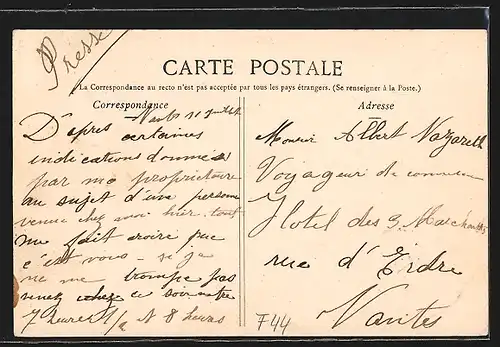 Pressé
CARTE POSTALE
La Correspondance au recto n'est pas acceptée par tous les pays étrangers. (Se renseigner à la Poste.)
Correspondance
Nantes 11 Juillet
D'après certaines
indications données
par ma propriétaire
au sujet d'une personne
venue chez moi hier. tout
me fait croire que
c'est vous - si je
ne me trompe pas
venez chez ce soir entre
7 heures 1/2 N 8 heures
Adresse
Monsieur Albert Nazareth
Voyageur de commerce
Hotel des 3 Marchands
rue d'Erdre
Nantes
F44